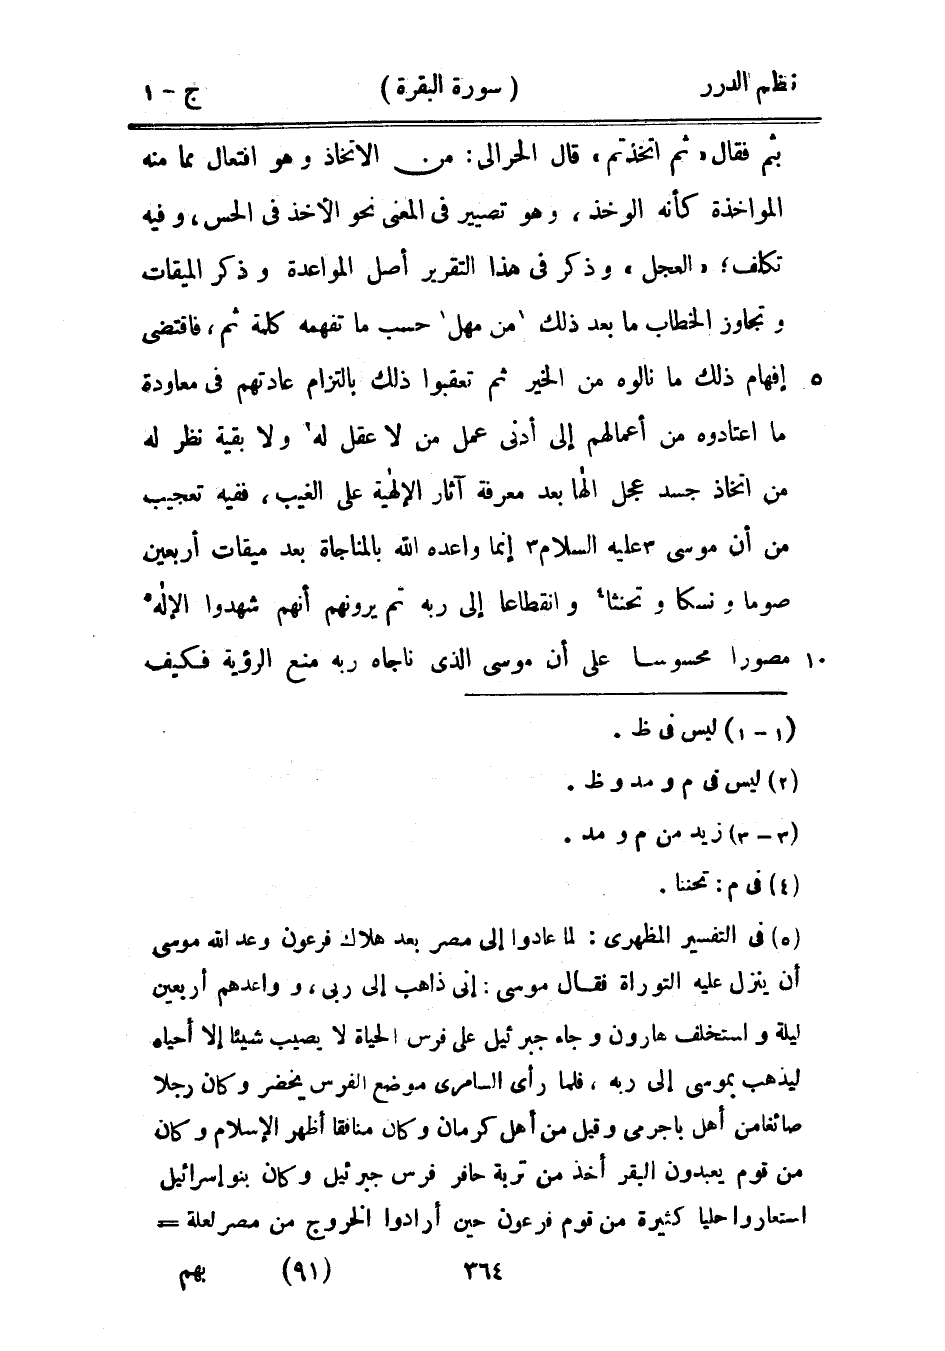 نظم الدرر ( سورة البقرة ) ج - ١
بثم فقال « ثم اتخذتم » قال الحرالى : من الاتخاذ و هو افتعال مما منه
المواخذة كأنه الوخذ ، و هو تصيير فى المعنى نحو الأخذ فى الحس ، و فيه
تكلف ؛ « العجل » و ذكر فى هذا التقرير أصل المواعدة و ذكر الميقات
و تجاوز الخطاب ما بعد ذلك ١من مهل١ حسب ما تفهمه كلمة ثم ، فاقتضى
٥ إفهام ذلك ما نالوه من الخير ثم تعقبوا ذلك بالتزام عادتهم فى معاودة
ما اعتادوه من أعمالهم إلى أدنى عمل من لا عقل له٢ و لا بقية نظر له
من اتخاذ جسد عجل الٰها بعد معرفة آثار الإلٰهية على الغيب ، ففيه تعجيب
من أن موسى ٣عليه السلام٣ إنما واعده الله بالمناجاة بعد ميقات أربعين
صوما و نسكا و تحنثا٤ و انقطاعا إلى ربه ثم يرونهم أنهم شهدوا الإلٰه٥
١٠ مصورا محسوسا على أن موسى الذى ناجاه ربه منع الرؤية فكيف
(١ - ١) ليس فى ظ .
(٢) ليس فى م و مد و ظ .
(٣ - ٣) زيد من م و مد .
(٤) فى م : تحننا .
(٥) فى التفسير المظهرى : لما عادوا إلى مصر بعد هلاك فرعون وعد الله موسى
أن ينزل عليه التوراة فقال موسى : إنى ذاهب إلى ربى ، و واعدهم أربعين
ليلة و استخلف هارون و جاء جبرئيل على فرس الحياة لا يصيب شيئا إلا أحياه
ليذهب بموسى إلى ربه ، فلما رأى السامرى موضع الفرس يخضر وكان رجلا
صائغا من أهل باجرمى و قيل من أهل كرمان وكان منافقا أظهر الإسلام وكان
من قوم يعبدون البقر أخذ من تربة حافر فرس جبرئيل وكان بنو إسرائيل
استعاروا حليا كثيرة من قوم فرعون حين أرادوا الخروج من مصر لعلة =
٣٦٤ (٩١) بهم